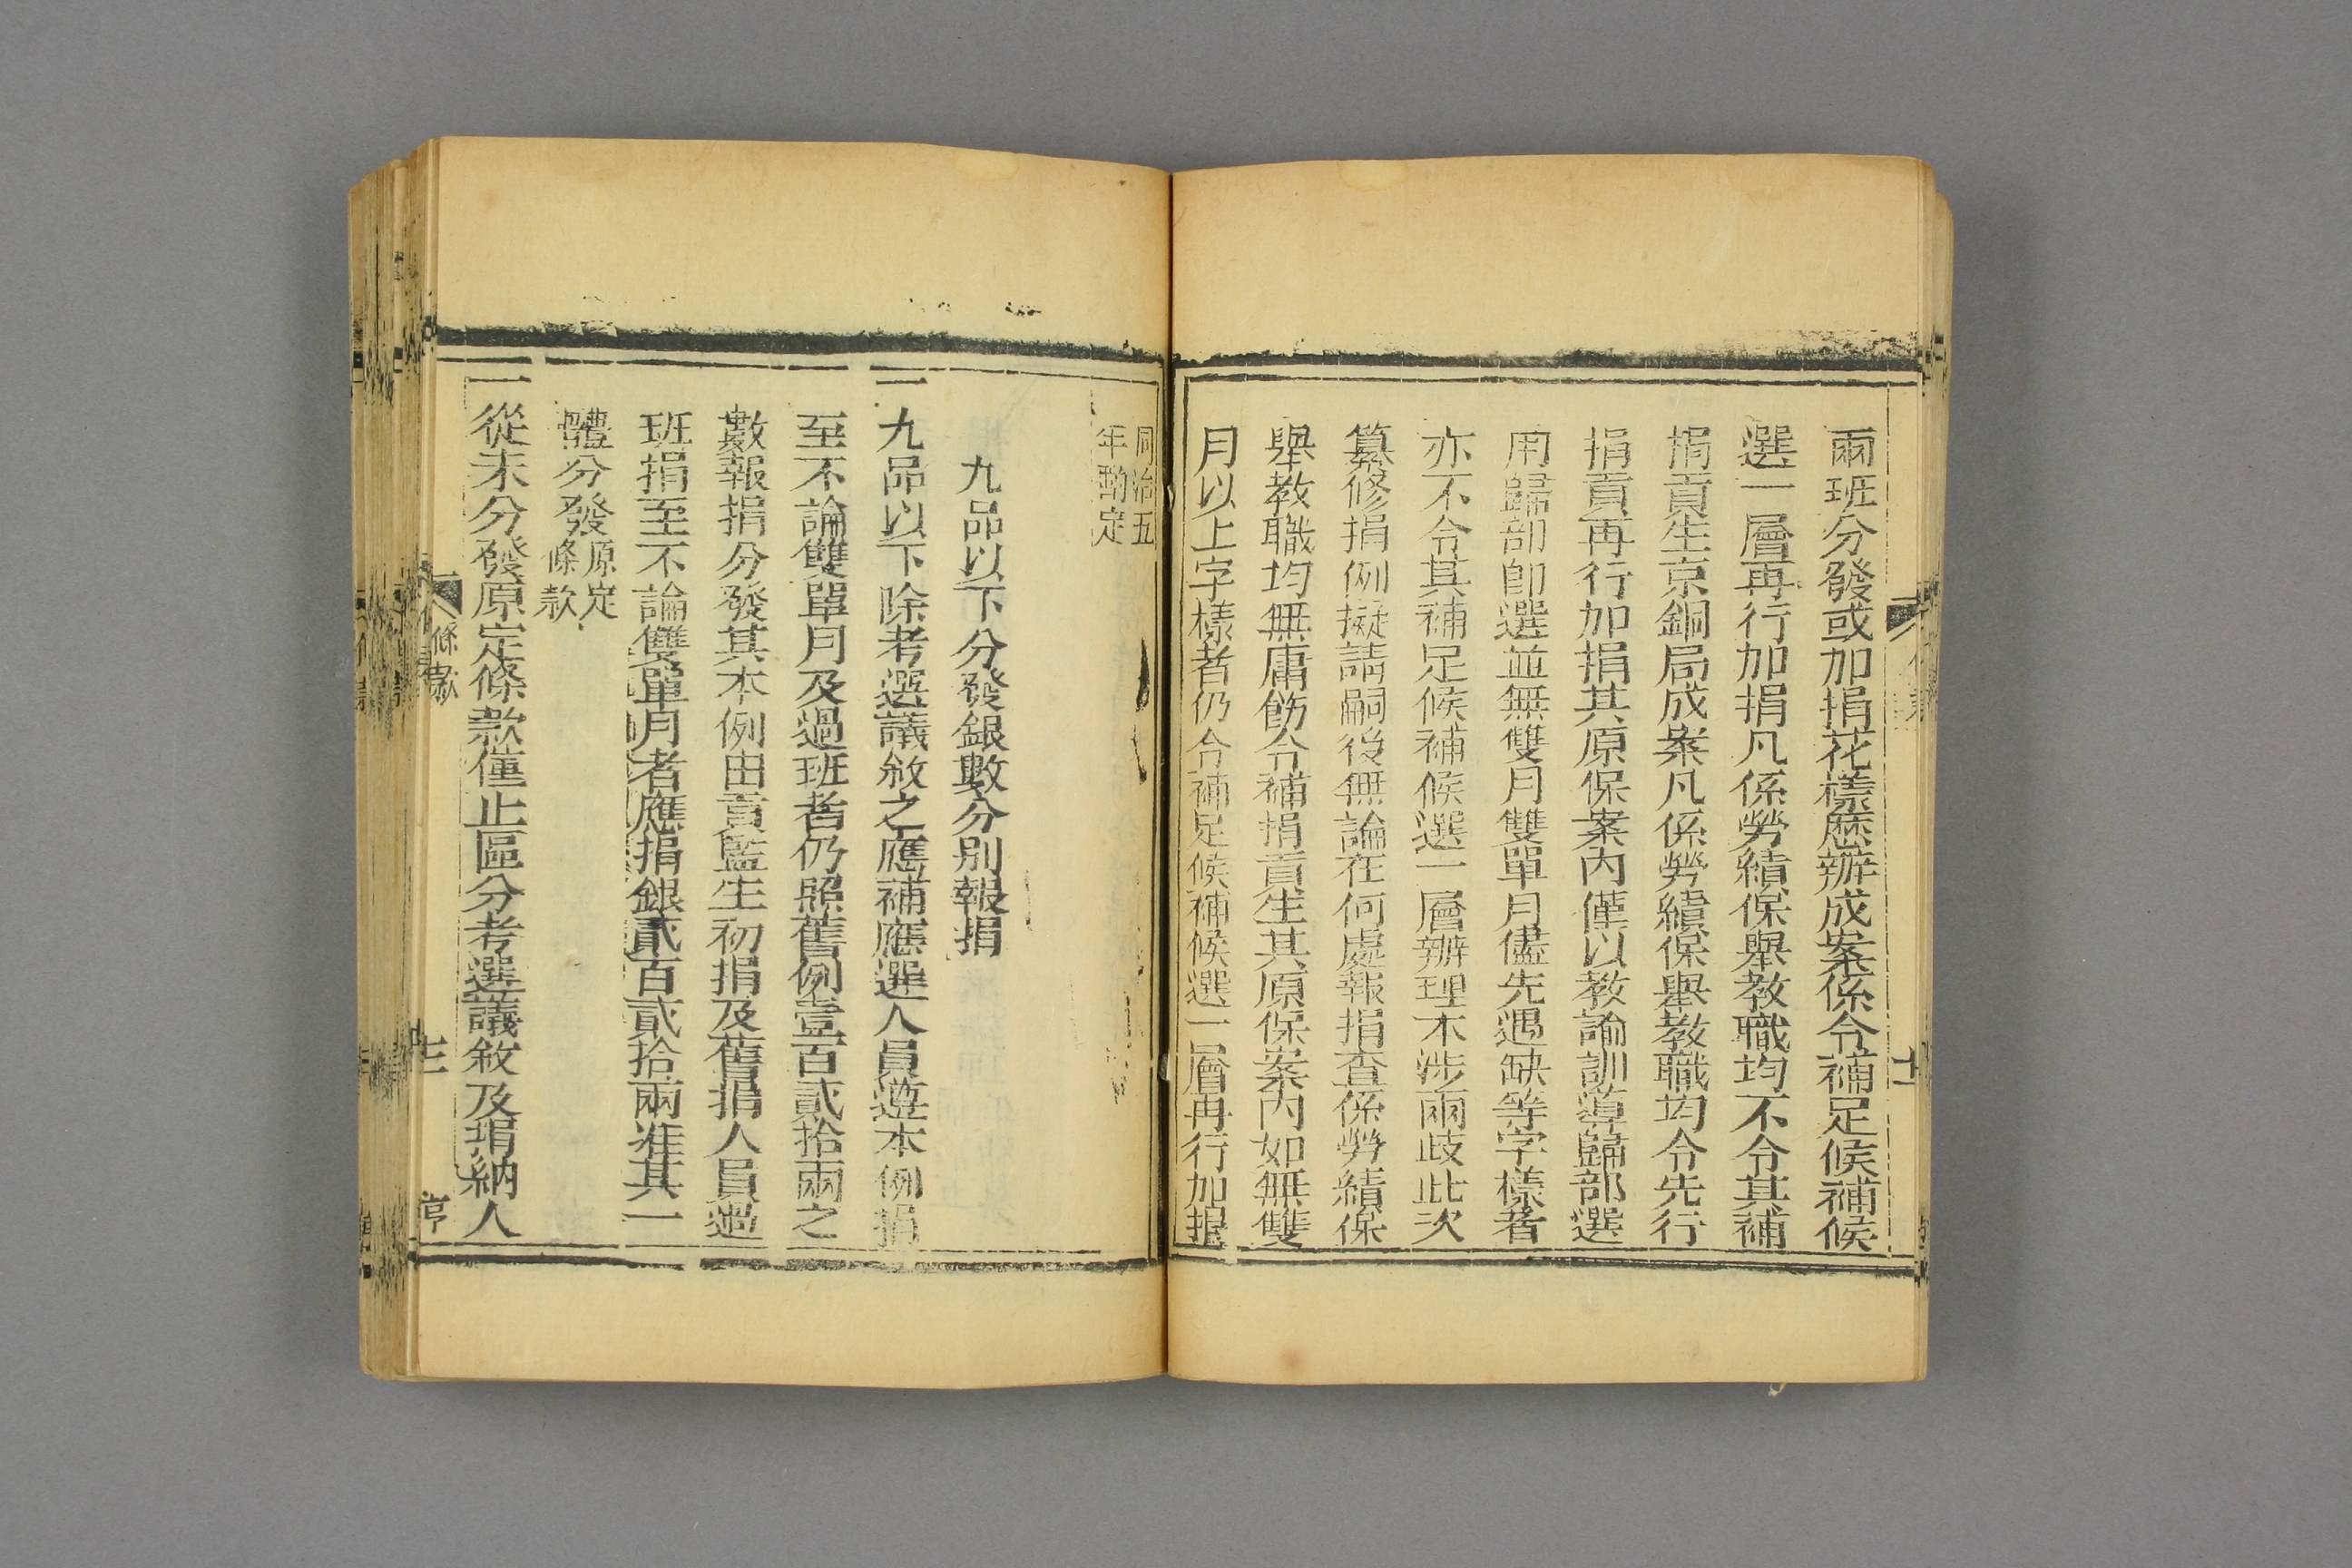 兩班分發或加捐花樣歷辦成案係令補足候補候
選一層再行加捐凡係勞績保舉教職均不令其補
捐貢生京銅局成案凡係勞績保舉教職均令先行
捐貢再行加捐其原保案內僅以教諭訓導歸部選
用歸部卽選並無雙月雙單月儘先遇缺等字樣者
亦不令其補足候補候選一層辦理不涉兩歧此次
纂修捐例擬請嗣後無論在何處報捐查係勞績保
舉教職均無庸飭令補捐貢生其原保案內如無雙
月以上字樣者仍令補足候補候選一層再行加捐
同治五
年酌定
九品以下分發銀數分別報捐
一九品以下除考選議敘之應補應選人員遵本例捐
至不論雙單月及過班者仍照舊例壹百貳拾兩之
數報捐分發其本例由貢監生初捐及舊捐人員過
班捐至不論雙單月者應捐銀貳百貳拾兩准其一
體分發原定
條款
一從未分發原定條款僅止區分考選議敘及捐納人
條款